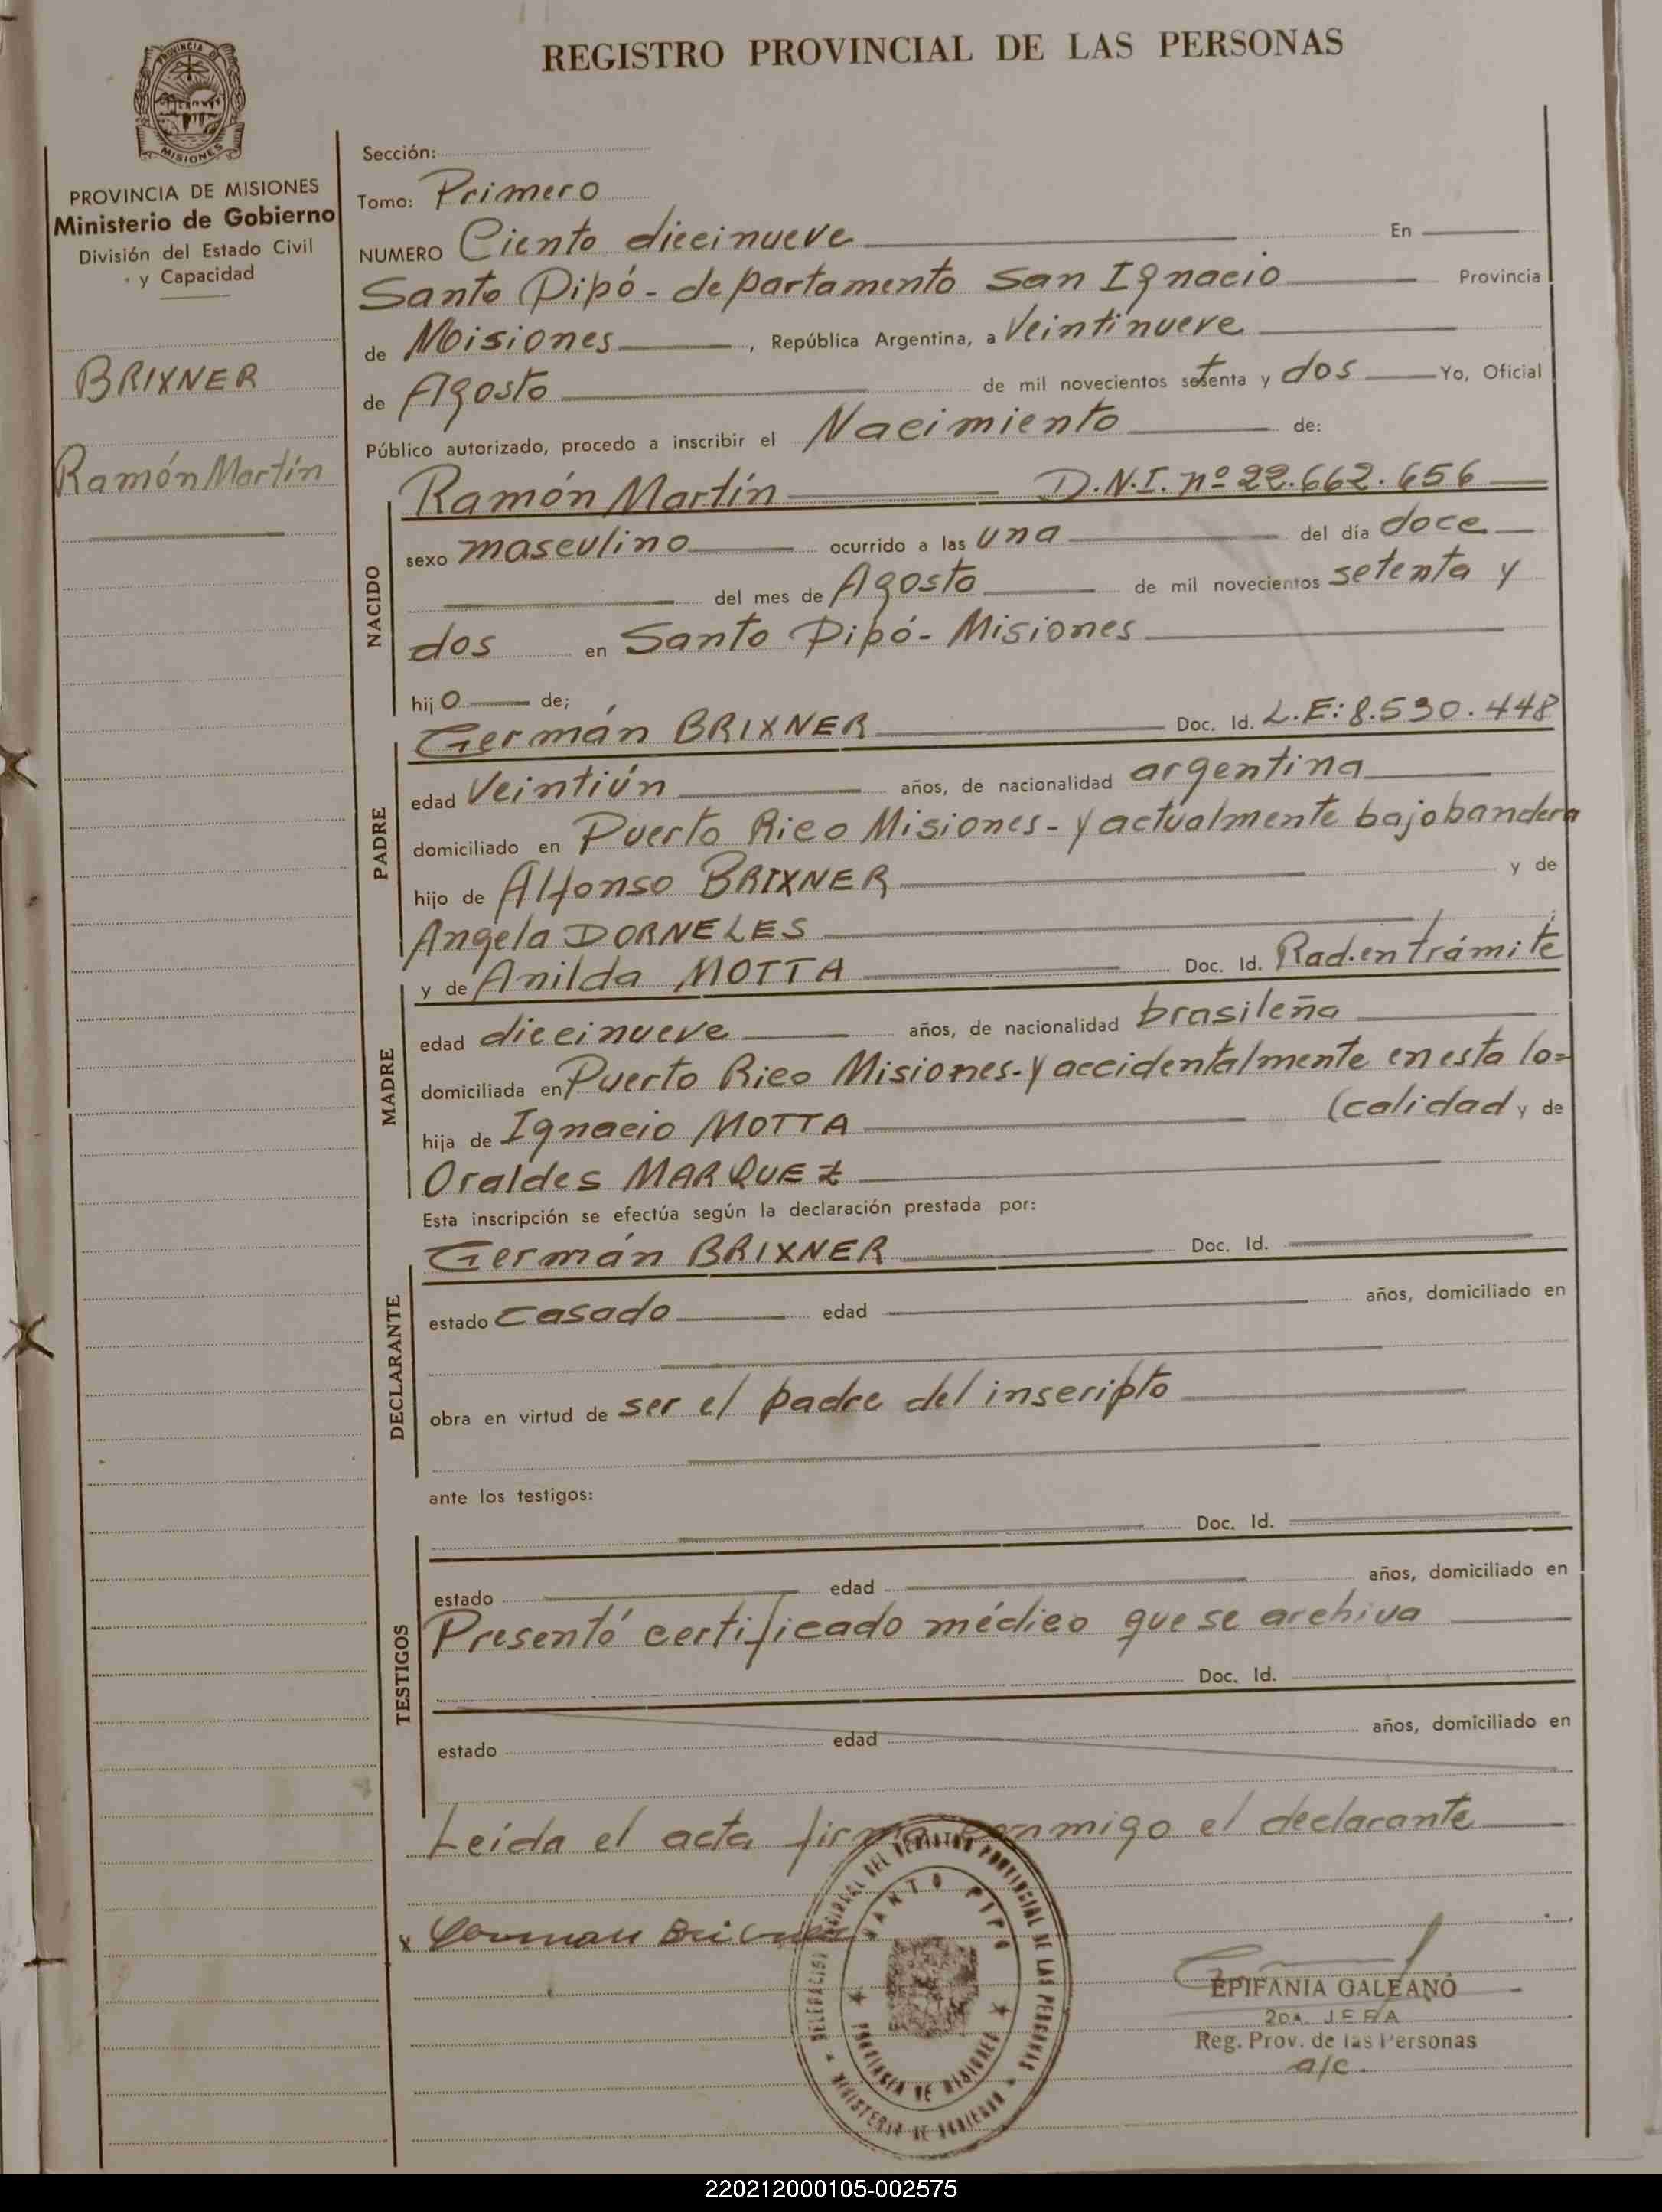 REGISTRO PROVINCIAL DE LAS PERSONAS
PROVINCIA DE MISIONES
PROVINCIA DE MISIONES
Ministerio de Gobierno
División del Estado Civil
y Capacidad
BRIXNER
Ramón Martín
Sección:
Tomo: Primero
NUMERO Ciento diecinueve En
Santo Pipó - departamento San Ignacio Provincia
de Misiones, República Argentina, a Veintinueve
de Agosto de mil novecientos setenta y dos Yo, Oficial
Público autorizado, procedo a inscribir el Nacimiento de:
NACIDO
Ramón Martín D.N.I. nº 22.662.656
sexo masculino ocurrido a las una del día doce
del mes de Agosto de mil novecientos setenta y
dos en Santo Pipó - Misiones
hijo de;
PADRE
Germán BRIXNER Doc. Id. L.E: 8.530.448
edad Veintiún años, de nacionalidad argentina
domiciliado en Puerto Rico Misiones - y actualmente bajo bandera
hijo de Alfonso BRIXNER y de
Angela DORNELES
MADRE
y de Anilda MOTTA Doc. Id. Rad. en trámite
edad diecinueve años, de nacionalidad brasileña
domiciliada en Puerto Rico Misiones - y accidentalmente en esta lo=
hija de Ignacio MOTTA (calidad y de
Oraldes MARQUEZ
Esta inscripción se efectúa según la declaración prestada por:
DECLARANTE
Germán BRIXNER Doc. Id.
estado casado edad años, domiciliado en
obra en virtud de ser el padre del inscripto
ante los testigos:
TESTIGOS
Doc. Id.
estado edad años, domiciliado en
Presentó certificado médico que se archiva
Doc. Id.
estado edad años, domiciliado en
Leída el acta firma conmigo el declarante
x German Brixner
DELEGACION GENERAL DEL REGISTRO PROVINCIAL DE LAS PERSONAS
SANTO PIPO
PROVINCIA DE MISIONES
MINISTERIO DE GOBIERNO
EPIFANIA GALEANO
2DA. JEFA
Reg. Prov. de las Personas
a/c.
220212000105-002575